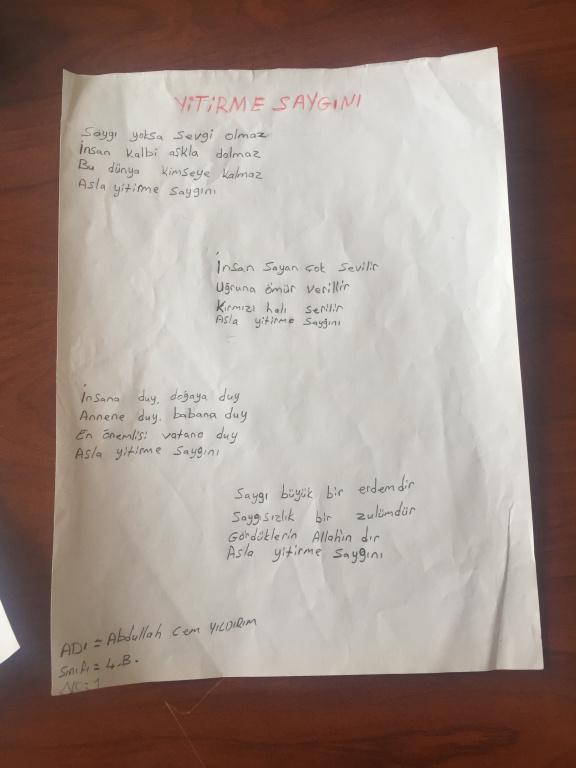 YİTİRME SAYGINI
Saygı yoksa sevgi olmaz
İnsan kalbi aşkla dolmaz
Bu dünya kimseye kalmaz
Asla yitirme saygını
İnsan sayan çok sevilir
Uğruna ömür verillir
Kırmızı halı serilir
Asla yitirme saygını
İnsana duy, doğaya duy
Annene duy, babana duy
En önemlisi vatana duy
Asla yitirme saygını
Saygı büyük bir erdemdir
Saygısızlık bir zulümdür
Gördüklerin Allah'ın dır
Asla yitirme saygını
ADI = Abdullah Cem YILDIRIM
Sınıfı = 4-B.
NO: 1